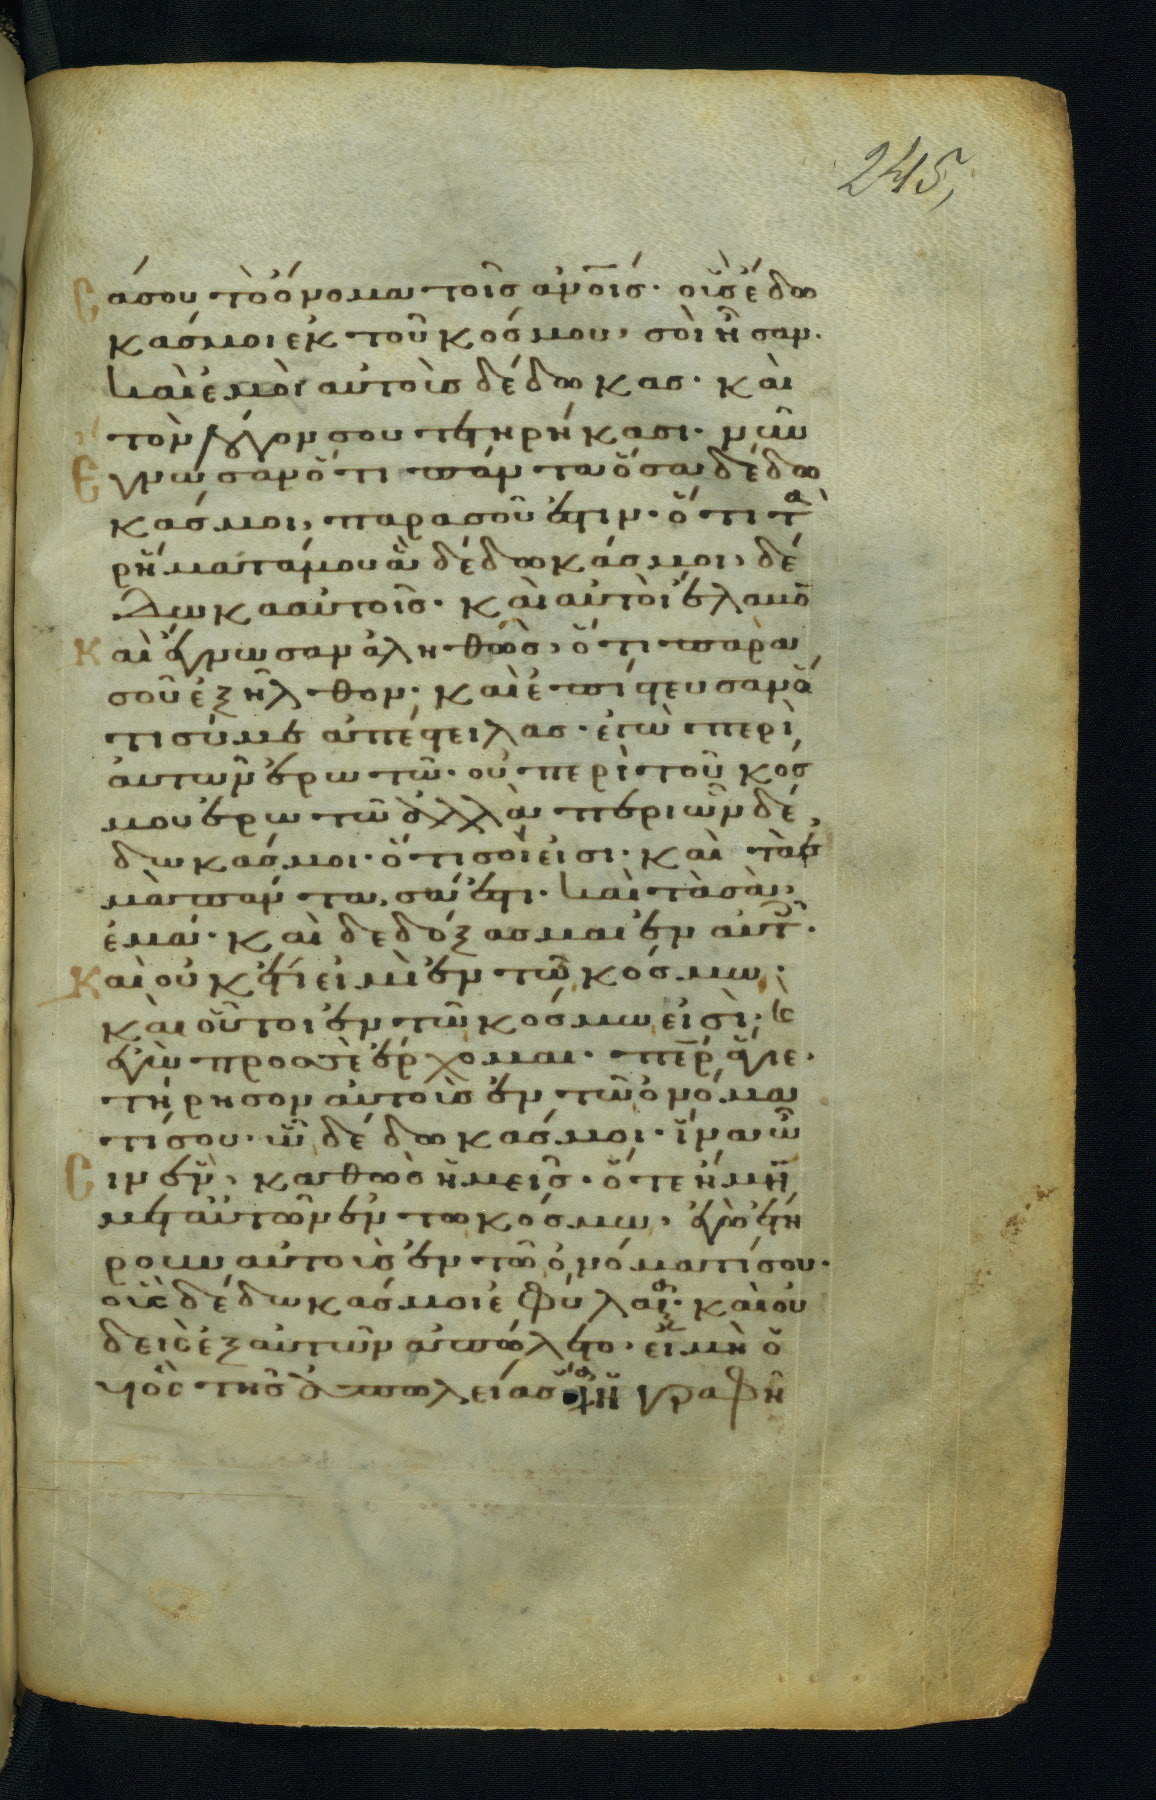 245,
σά σου τὸ ὄνομα τοῖς ἀνοῖς· οὓς ἔδω
κάς μοι ἐκ τοῦ κόσμου, σοὶ ἦσαν·
καὶ ἐμοὶ αὐτοὺς δέδωκας· καὶ
τὸν λόγον σου τετηρήκασι· νῦν
ἔγνωσαν ὅτι πάντα ὅσα δέδω
κάς μοι, παρὰ σοῦ ἐστιν· ὅτι τὰ
ρήματά μου ἃ δέδωκάς μοι, δέ
δωκα αὐτοῖς· καὶ αὐτοὶ ἔλαβον
Καὶ ἔγνωσαν ἀληθῶς, ὅτι παρὰ
σοῦ ἐξῆλθον· καὶ ἐπίστευσαν ὅ
τι σύ με ἀπέστειλας· ἐγὼ περὶ
αὐτῶν ἐρωτῶ· οὐ περὶ τοῦ κόσ
μου ἐρωτῶ ἀλλὰ περὶ ὧν δέ
δωκάς μοι· ὅτι σοί εἰσι· καὶ τὰ ἐ
μὰ πάντα, σά ἐστι· καὶ τὰ σὰ,
ἐμά· καὶ δεδόξασμαι ἐν αὐτοῖς·
Καὶ οὐκ ἔτι εἰμὶ ἐν τῷ κόσμω·
καὶ οὗτοι ἐν τῶ κόσμω εἰσὶ· κ
ἐγὼ πρὸς σὲ ἔρχομαι· περ ἅγιε·
τήρησον αὐτοὺς ἐν τῶ ὀνόμα
τί σου· ᾧ δέδωκάς μοι· ἵνα ὦ
σιν ἓν, καθὼς ἡμεῖς· ὅτε ἤμην
μετ αὐτῶν ἐν τῶ κόσμω, ἐγὼ ἐτή
ρουν αὐτοὺς ἐν τῶ ὀνόματί σου·
οὓς δέδωκάς μοι ἐφύλαξα· καὶ οὐ
δεὶς ἐξ αὐτῶν ἀπώλετο· εἰ μὴ ὁ
υἱὸς τῆς ἀπωλείας ἡ γραφὴ